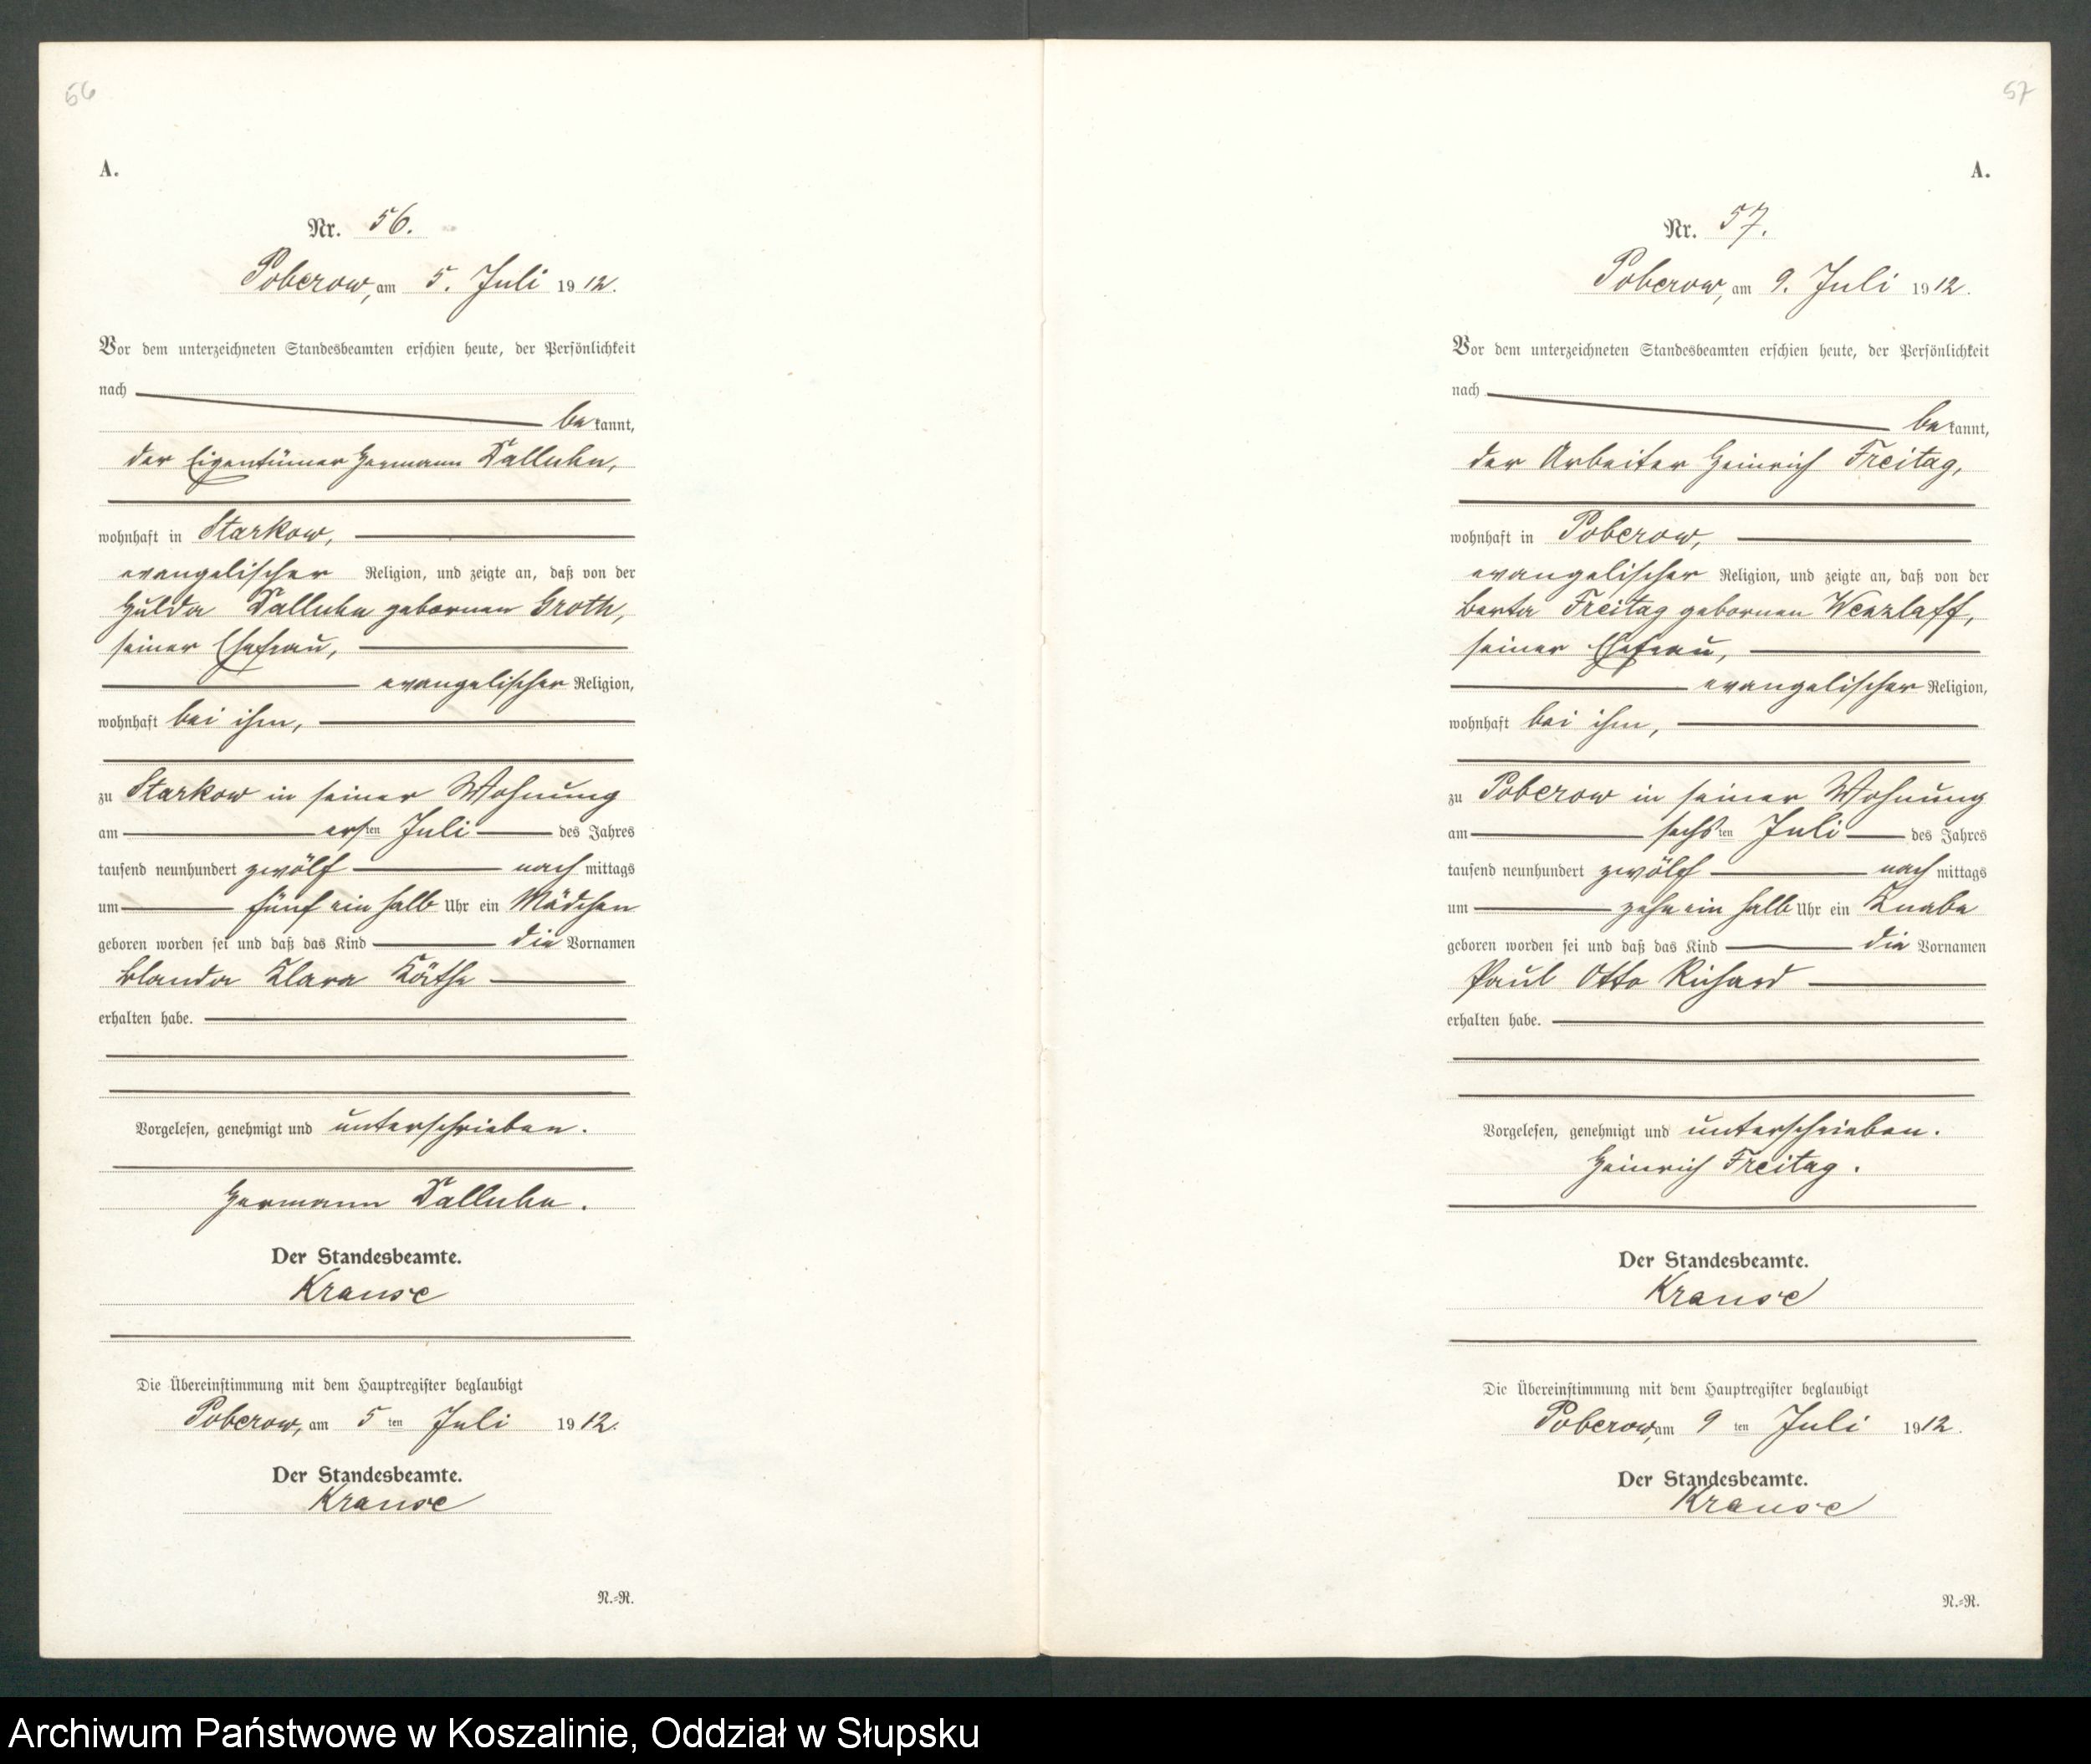 56
A.
Nr. 56.
Poberow, am 5. Juli 1912.
Vor dem unterzeichneten Standesbeamten erschien heute, der Persönlichkeit
nach
bekannt,
der Eigentümer Hermann Dalluhn,
wohnhaft in Starkow,
evangelischer Religion, und zeigte an, daß von der
Hulda Dalluhn gebornen Groth,
seiner Ehefrau,
evangelischer Religion,
wohnhaft bei ihm,
zu Starkow in seiner Wohnung
am ersten Juli des Jahres
tausend neunhundert zwölf nachmittags
um fünf ein halb Uhr ein Mädchen
geboren worden sei und daß das Kind die Vornamen
Klara Käthe
erhalten habe.
Vorgelesen, genehmigt und unterschrieben.
Hermann Dalluhn.
Der Standesbeamte.
Krause
Die Übereinstimmung mit dem Hauptregister beglaubigt
Poberow, am 5ten Juli 1912.
Der Standesbeamte.
Krause
N.-R.
57
A.
Nr. 57.
Poberow, am 9. Juli 1912.
Vor dem unterzeichneten Standesbeamten erschien heute, der Persönlichkeit
nach
bekannt,
der Arbeiter Heinrich Freitag,
wohnhaft in Poberow,
evangelischer Religion, und zeigte an, daß von der
Berta Freitag gebornen Wenzlaff,
seiner Ehefrau,
evangelischer Religion,
wohnhaft bei ihm,
zu Poberow in seiner Wohnung
am sechsten Juli des Jahres
tausend neunhundert zwölf nachmittags
um zehn ein halb Uhr ein Knabe
geboren worden sei und daß das Kind die Vornamen
Paul Otto Richard
erhalten habe.
Vorgelesen, genehmigt und unterschrieben.
Heinrich Freitag.
Der Standesbeamte.
Krause
Die Übereinstimmung mit dem Hauptregister beglaubigt
Poberow, am 9ten Juli 1912.
Der Standesbeamte.
Krause
N.-R.
Archiwum Państwowe w Koszalinie, Oddział w Słupsku